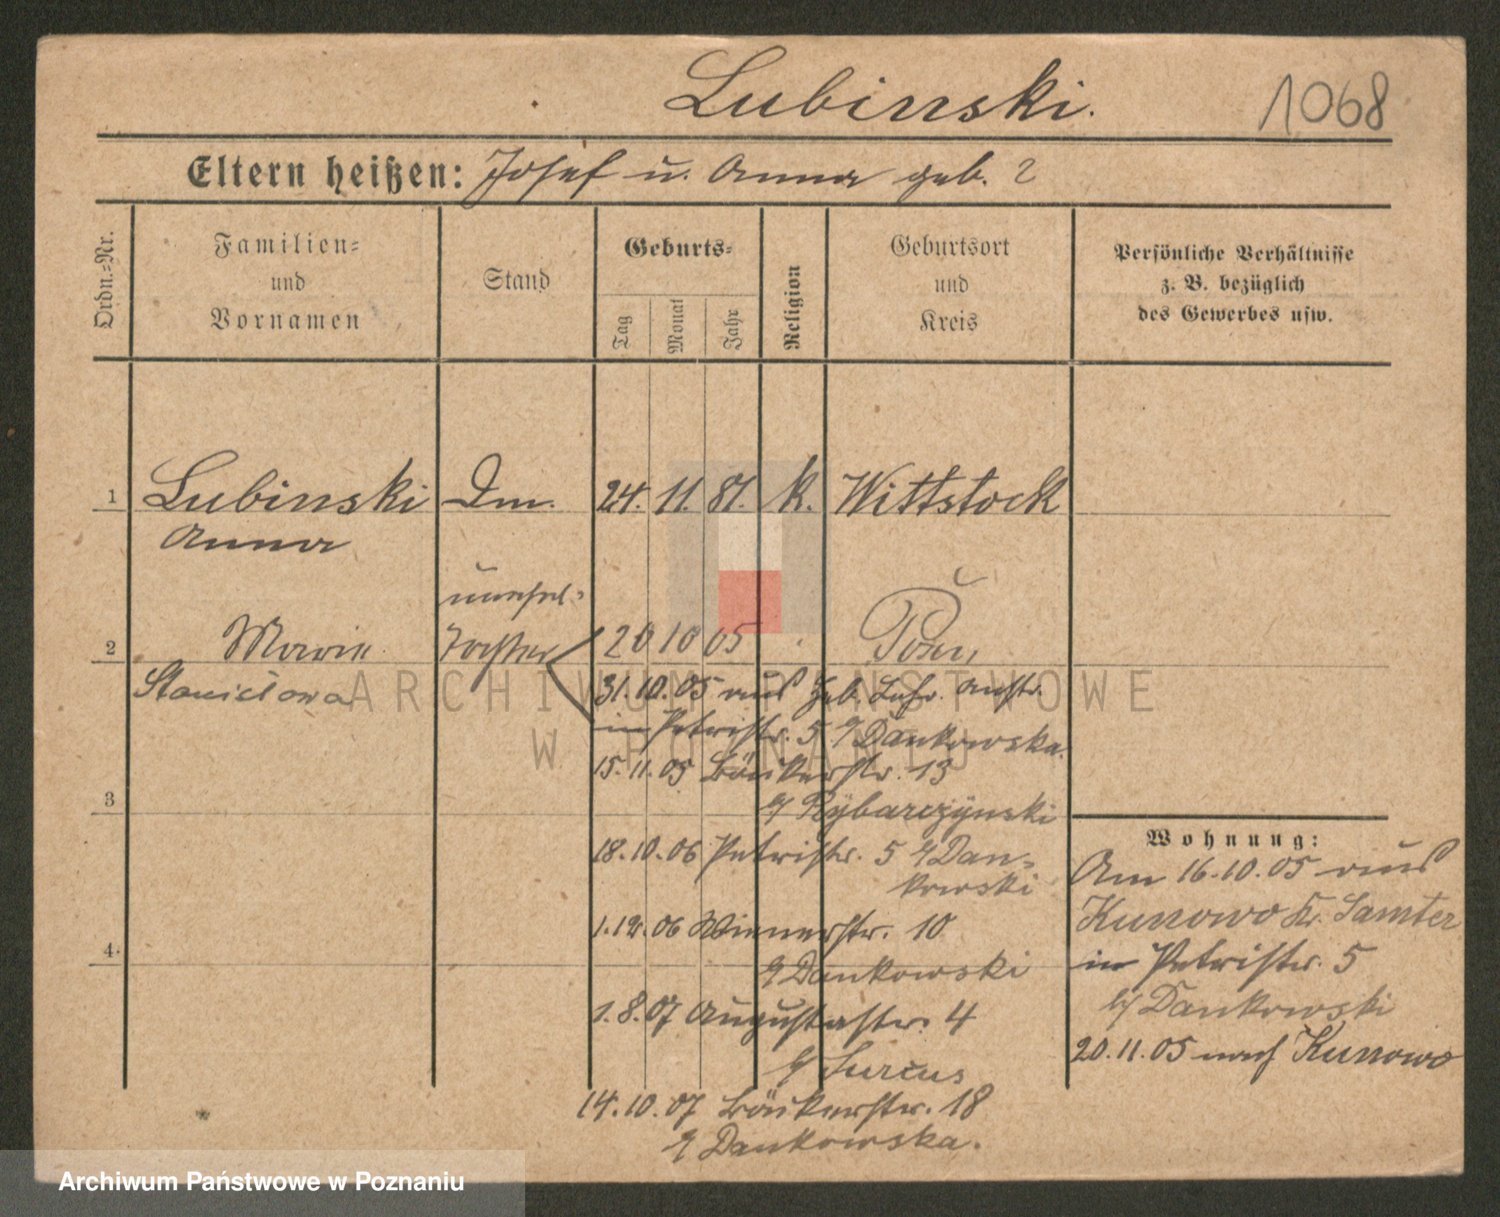 Lubinski.
1068
Eltern heißen: Josef u. Anna geb. ?
Ordn.=Nr.
Familien=
und
Vornamen
Stand
Geburts=
Tag
Monat
Jahr
Religion
Geburtsort
und
Kreis
Persönliche Verhältnisse
z. B. bezüglich
des Gewerbes usw.
1 Lubinski Dm. 24. 11. 81. k. Wittstock
Anna
unehel=
2 Marie Tochter 20 10 05 Posen
Stanislowa
31.10.05 aus Anstr.
in Petristr. 5 b/ Dankowska.
15.11.05 Bäukerstr. 13
3
b/ Rybarczynski
18.10.06 Petristr. 5 b/ Dan=
kowski
1.12.06 Wienerstr. 10
4.
b/ Dankowski
1.8.07 Augustastr. 4
b/ Surcus
14.10.07 Bäukerstr. 18
b/ Dankowska.
Wohnung:
Am 16.10.05 aus
Kunowo Kr. Samter
in Petristr. 5
b/ Dankowski
20.11.05 nach Kunowo
ARCHIWUM PAŃSTWOWE
W POZNANIU
Archiwum Państwowe w Poznaniu